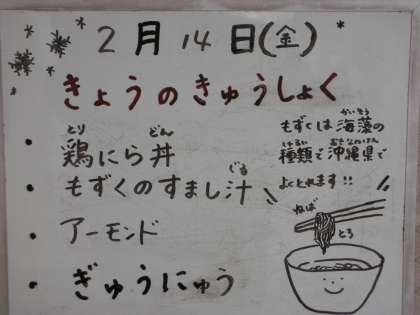 2月14日(金)
きょうのきゅうしょく
とり どん
・鶏にら丼
じる
・もずくのすまし汁
・アーモンド
・ぎゅうにゅう
かいそう
もずくは海藻の
しゅるい おきなわけん
種類で沖縄県で
よくとれます!!
ねば
とろ